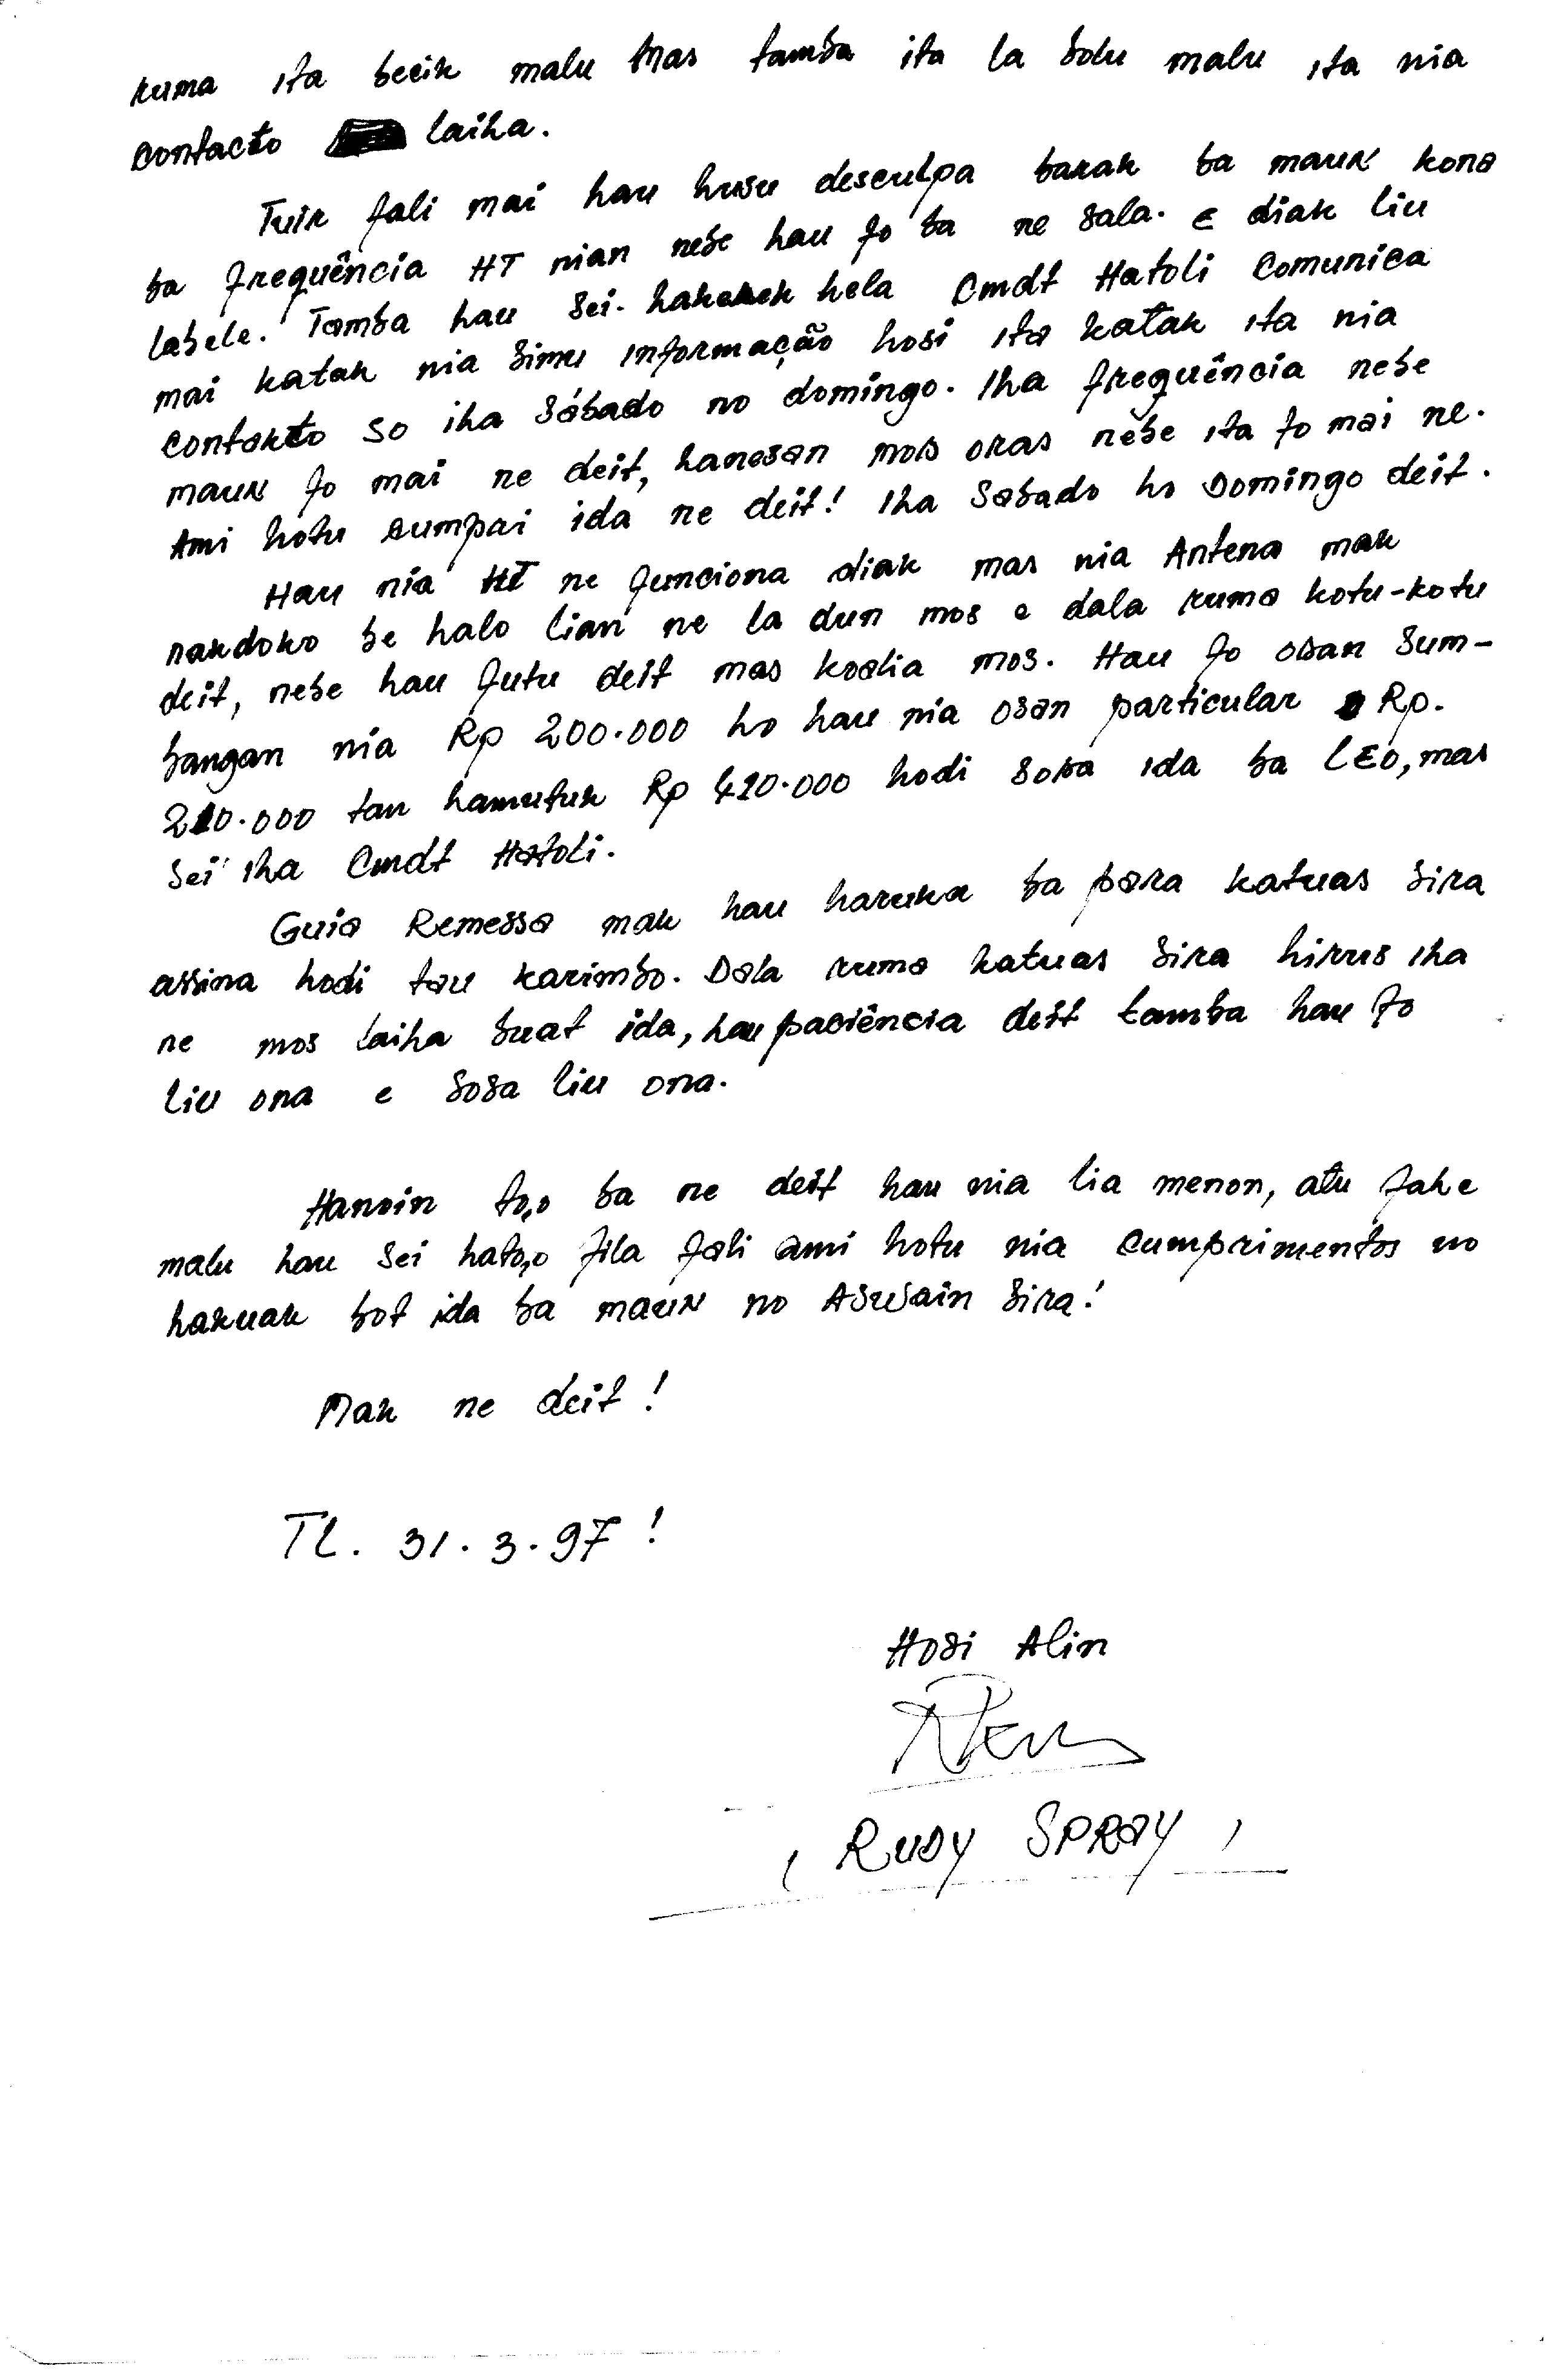 ruma ita becik malu mas tamba ita la bolu malu ita nia
contacto laiha.
Tuir fali mai hau husu desculpa barak ba maun kona
ba frequência HT nian nebe hau fo ba ne sala. E diak liu
labele. Tamba hau sei hakerek hela Cmdt Hatoli comunica
mai katak nia simu informação hosi ita katak ita nia
contakto so iha sábado no domingo. Iha frequência nebe
maun fo mai ne deit, hanesan mos oras nebe ita fo mai ne.
Ami hotu cumpri ida ne deit! Iha Sabado ho Domingo deit.
Hau nia HT ne funciona diak mas nia Antena mak
nakdoko be halo lian ne la dun mos e dala ruma kotu-kotu
deit, nebe hau futu deit mas koalia mos. Hau fo osan sum-
bangan nia Rp 200.000 ho hau nia osan particular Rp.
210.000 tau hamutuk Rp 410.000 hodi sosa ida ba LEO, mas
sei iha Cmdt Hatoli.
Guia Remessa mak hau haruka ba para katuas sira
assina hodi tau karimbo. Dala ruma katuas sira hirus iha
ne mos laiha buat ida, hau paciência deit tamba hau fo
liu ona e sosa liu ona.
Hanoin to,o ba ne deit hau nia lia menon, atu fahe
malu hau sei hato,o fila fali ami hotu nia cumprimentos no
hakuak bot ida ba maun no Asuwain sira!
Mak ne deit!
TL. 31.3.97!
Hosi Alin
( RUDY SPRAY )